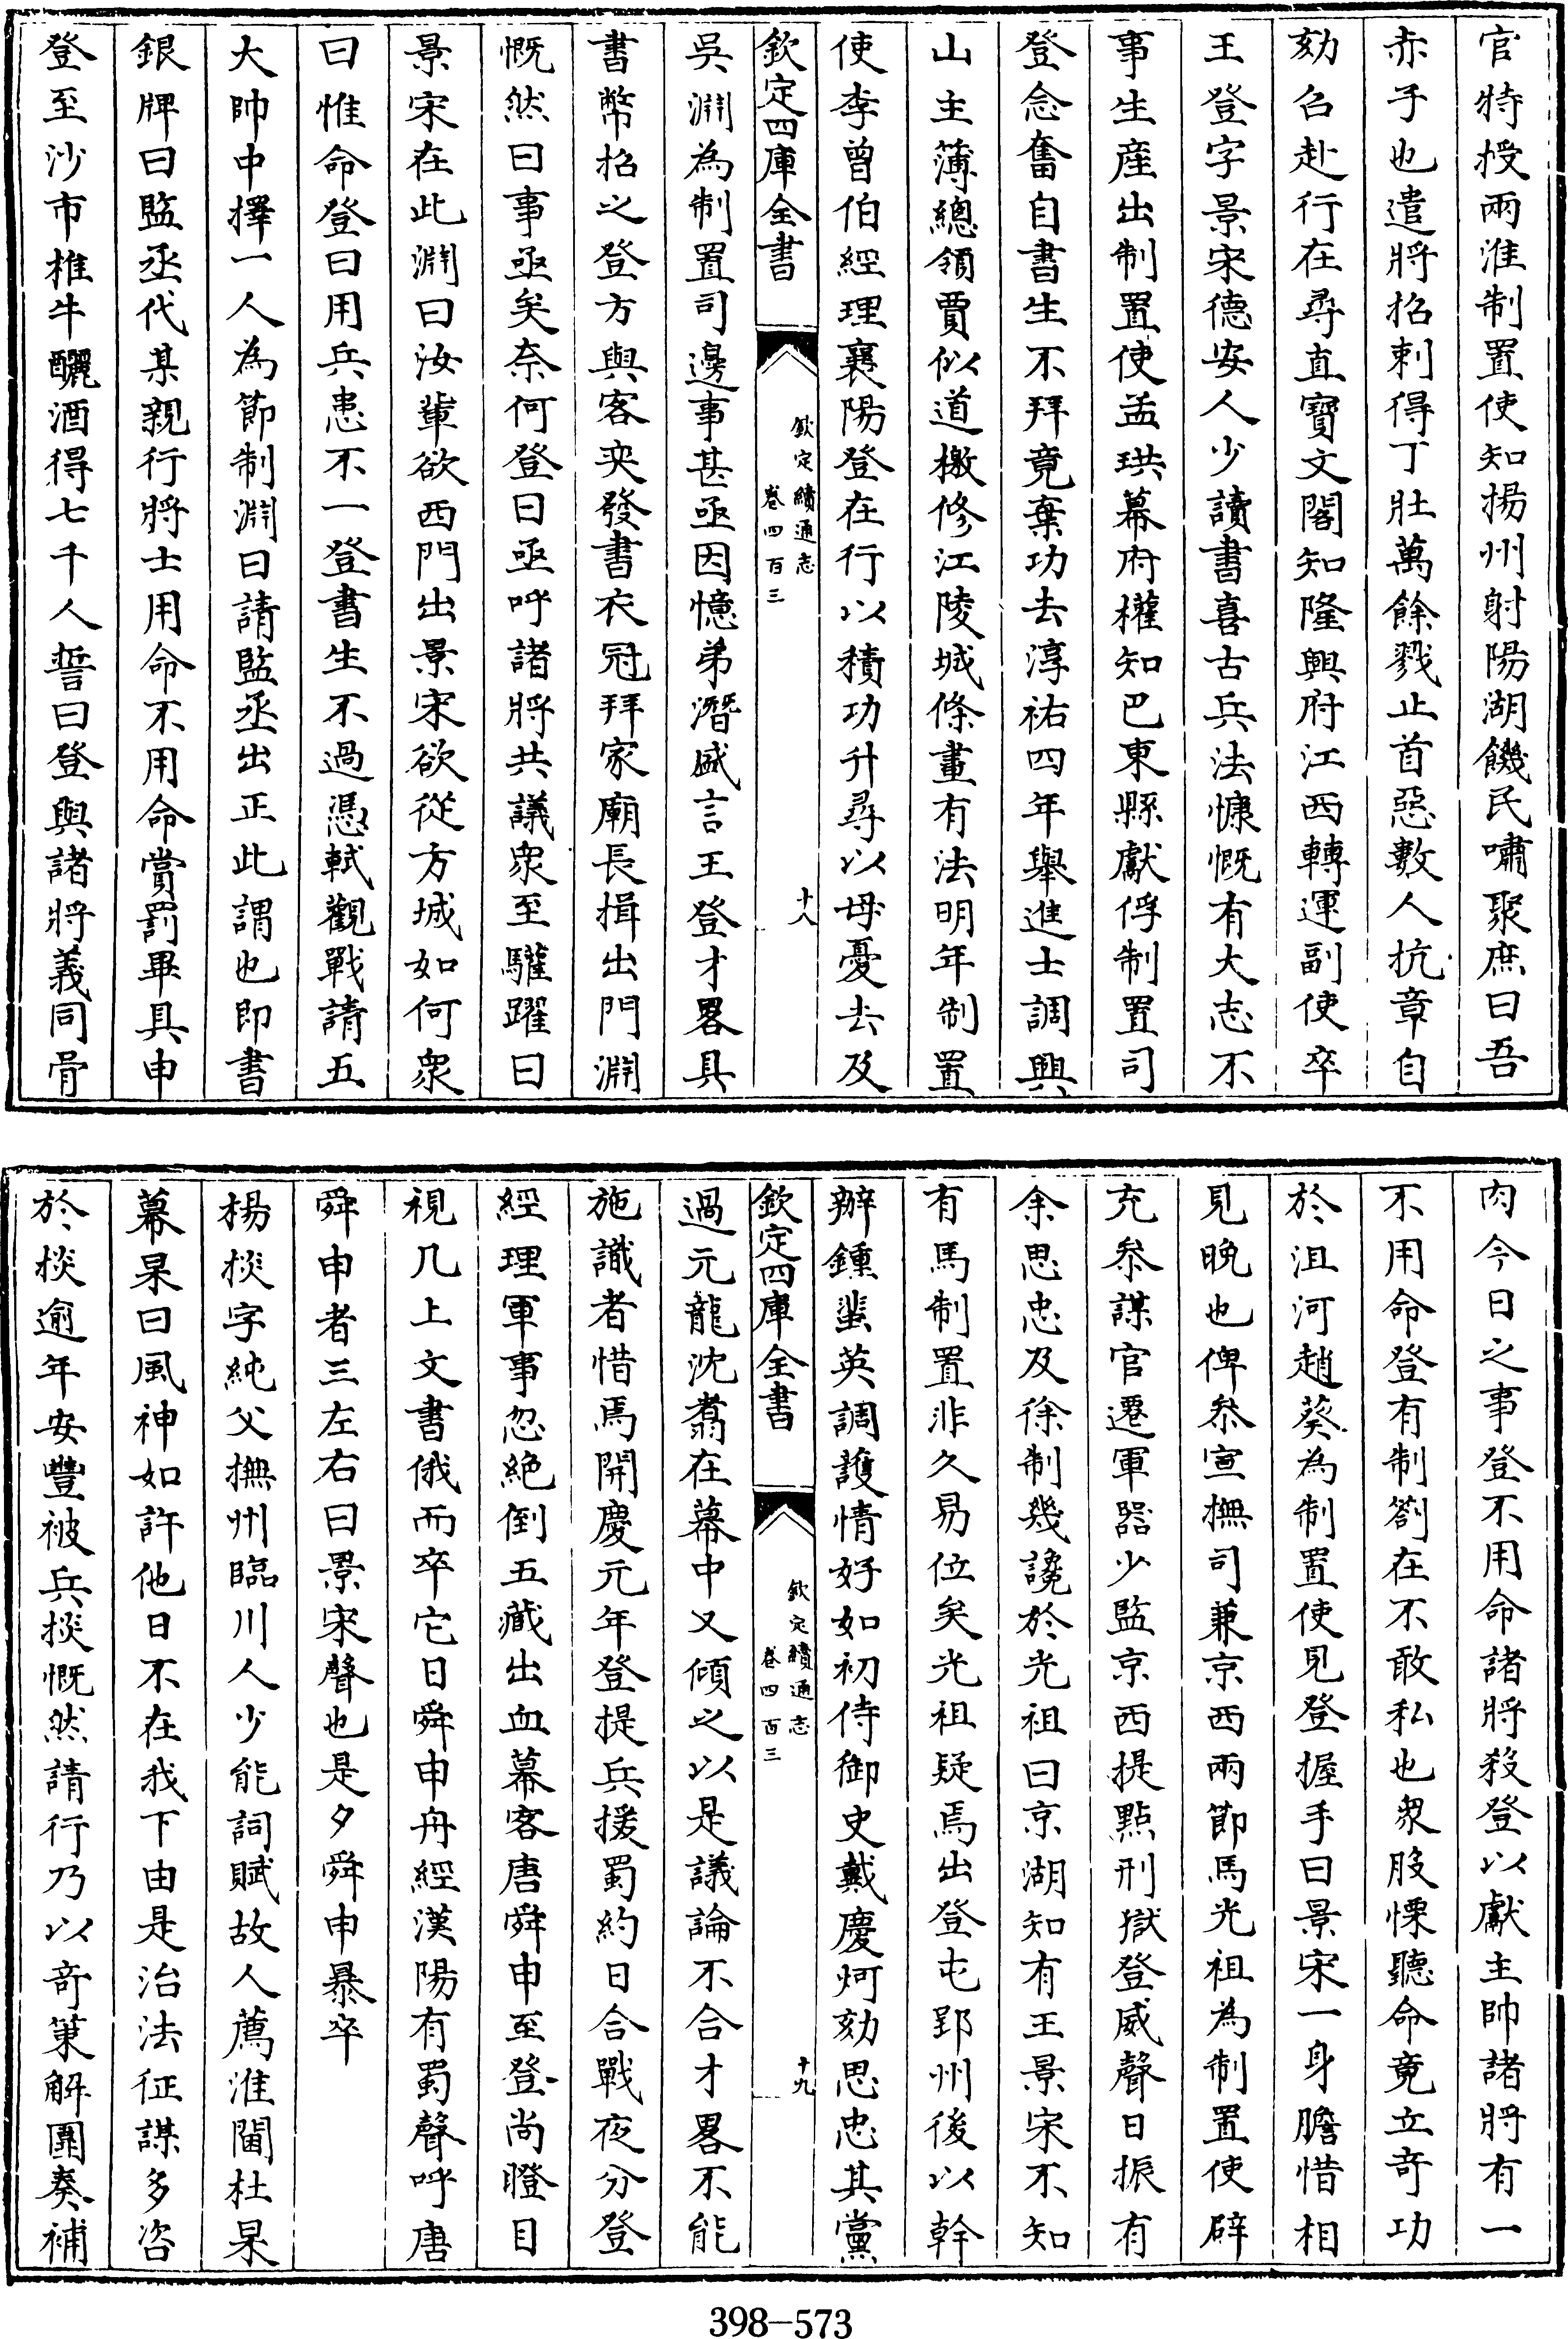 官特授兩淮制置使知揚州射陽湖饑民嘯聚庶曰吾
赤子也遣將招刺得丁壯萬餘戮止首惡數人抗章自
劾召赴行在尋直寶文閣知隆興府江西轉運副使卒
王登字景宋德安人少讀書喜古兵法慷慨有大志不
事生産出制置使孟珙幕府權知巴東縣獻俘制置司
登念奮自書生不拜竟棄功去淳祐四年舉進士調興
山主薄總領賈似道檄修江陵城條畫有法明年制置
使李曾伯經理襄陽登在行以積功升尋以母憂去及
欽定四庫全書
欽定續通志
卷四百三
十八
吳淵為制置司邊事甚亟因憶弟潛盛言王登才畧具
書幣招之登方與客奕發書衣冠拜家廟長揖出門淵
慨然曰事亟矣奈何登曰亟呼諸將共議衆至驩躍曰
景宋在此淵曰汝輩欲西門出景宋欲從方城如何衆
曰惟命登曰用兵患不一登書生不過憑軾觀戰請五
大帥中擇一人為節制淵曰請監丞出正此謂也即書
銀牌曰監丞代某親行將士用命不用命賞罰畢具申
登至沙市椎牛釃酒得七千人誓曰登與諸將義同骨
肉今日之事登不用命諸將殺登以獻主帥諸將有一
不用命登有制劄在不敢私也衆股慄聽命竟立奇功
於沮河趙葵為制置使見登握手曰景宋一身膽惜相
見晚也俾叅宣撫司兼京西兩節馬光祖為制置使辟
充叅謀官遷軍器少監京西提點刑獄登威聲日振有
余思忠及徐制幾讒於光祖曰京湖知有王景宋不知
有馬制置非久易位矣光祖疑焉出登屯郢州後以幹
辦鍾蜚英調護情好如初侍御史戴慶炣劾思忠其黨
欽定四庫全書
欽定續通志
卷四百三
十九
過元龍沈翥在幕中又傾之以是議論不合才畧不能
施識者惜焉開慶元年登提兵援蜀約日合戰夜分登
經理軍事忽絶倒五藏出血幕客唐舜申至登尚瞪目
視几上文書俄而卒它日舜申舟經漢陽有蜀聲呼唐
舜申者三左右曰景宋聲也是夕舜申暴卒
楊掞字純父撫州臨川人少能詞賦故人薦淮閫杜杲
幕杲曰風神如許他日不在我下由是治法征謀多咨
於掞逾年安豐被兵掞慨然請行乃以奇策解圍奏補
398–573